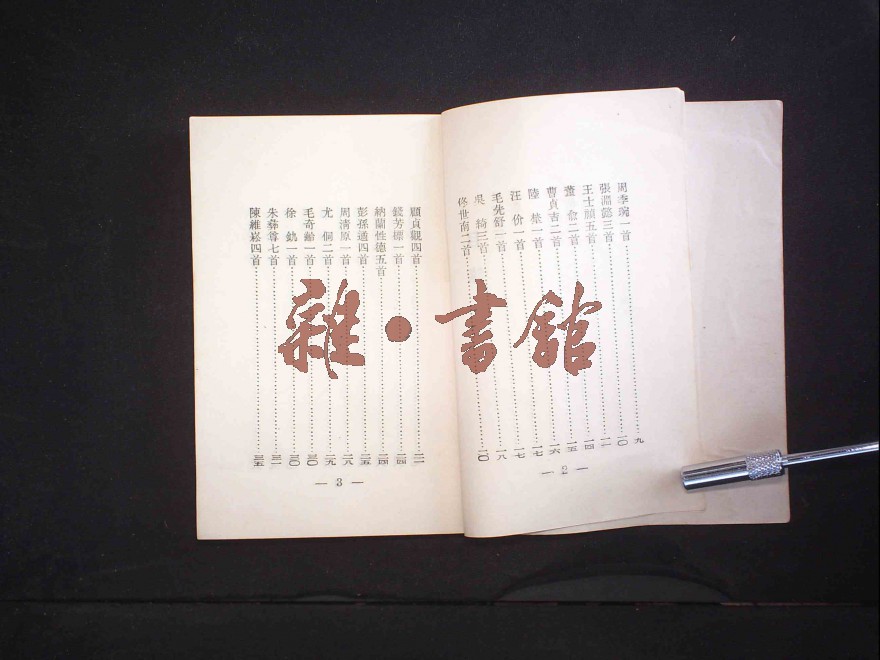 周季琬一首
張淵懿三首
王士禛五首
董俞二首
曹貞吉二首
陸棻一首
汪价一首
毛先舒一首
吳綺三首
佟世南二首
九
一〇
一二
一四
一五
一六
一七
一七
一八
二〇
— 2 —
顧貞觀四首
錢芳標一首
納蘭性德五首
彭孫遹四首
周清原一首
尤侗二首
毛奇齡一首
徐釚一首
朱彝尊七首
陳維崧四首
二四
二四
二五
二八
二九
三〇
三〇
三一
三五
— 3 —
雜·書館